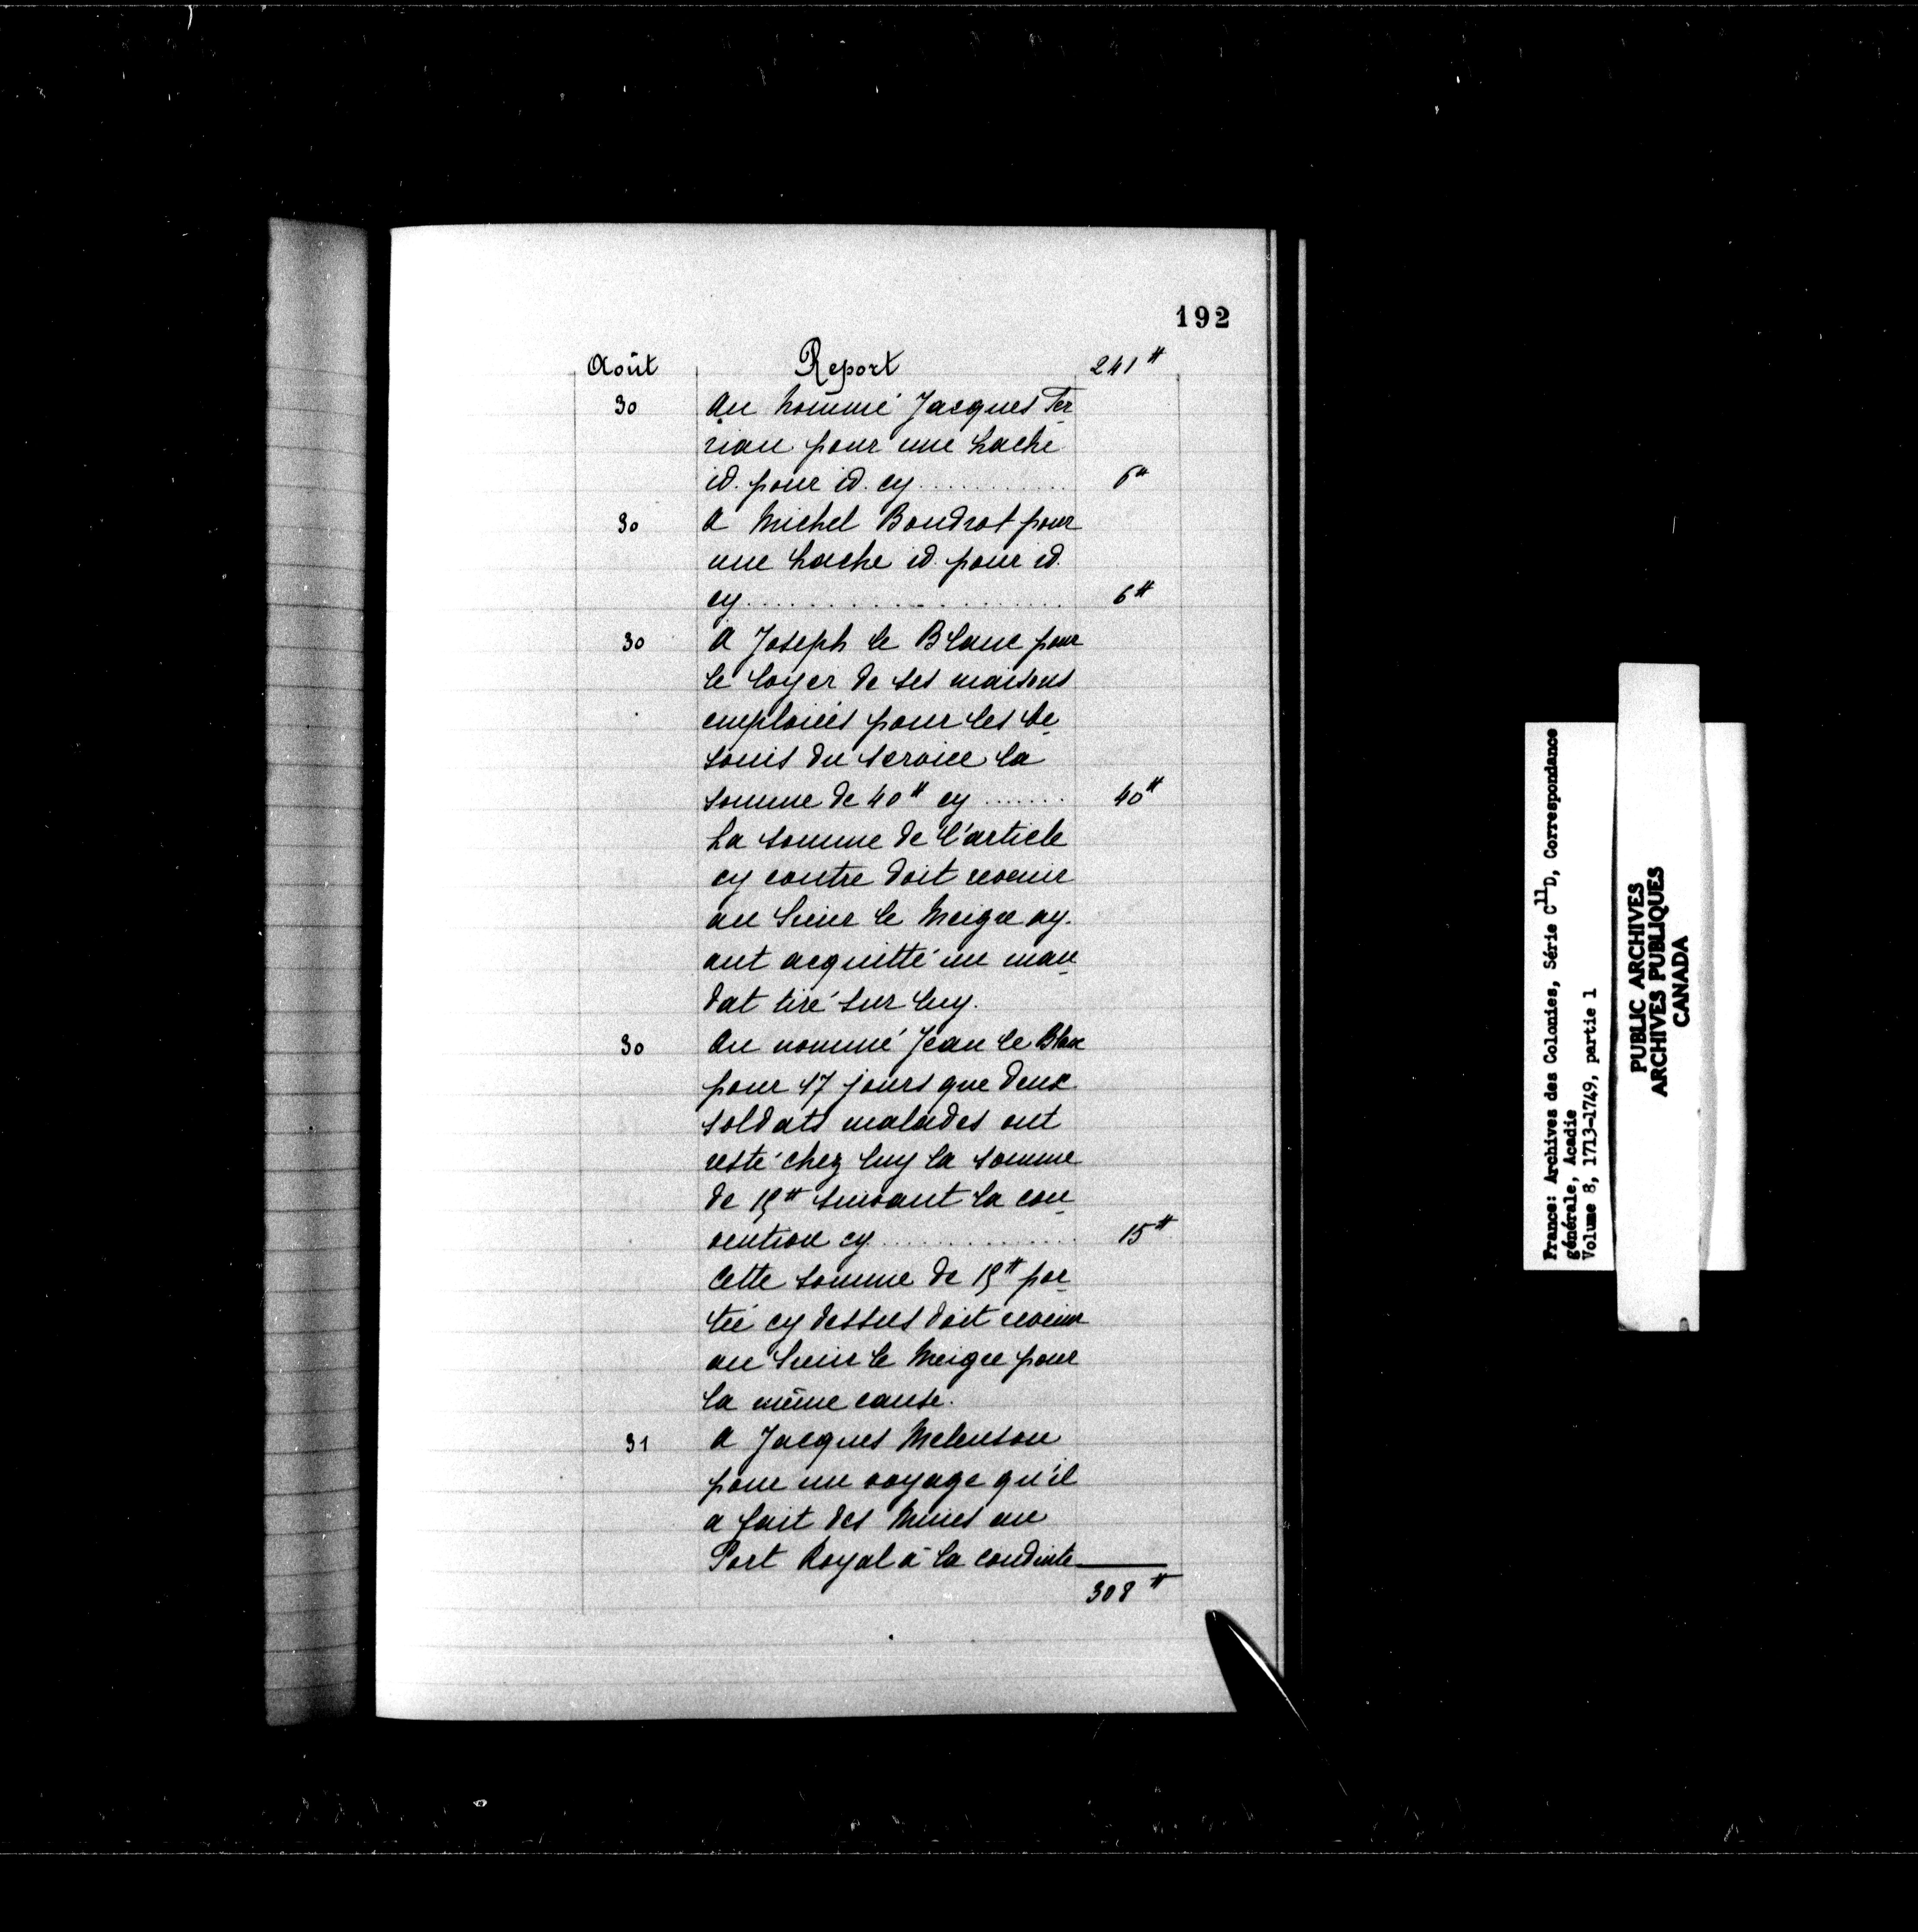 192
Août Report 241 ₶
30 Au nommé Jacques Ter
riau pour une hache
id. pour id. cy ............ 6 ₶
30 A Michel Boudrot pour
une hache id. pour id.
cy ..................... 6 ₶
30 A Joseph le Blanc pour
le loyer de ses maisons
emploiées pour les be
soins du service la
somme de 40 ₶ cy ....... 40 ₶
La somme de l'article
cy contre doit revenir
au Sieur le Meigre ay.
ant acquitté un man
dat tiré sur luy.
30 Au nommé Jean le Blanc
pour 47 jours que deux
soldats malades ont
resté chez luy la somme
de 15 ₶ suivant la con
vention cy ............... 15 ₶
Cette somme de 15 ₶ por
tée cy dessus doit revenir
au Sieur le Meigre pour
la même cause.
31 A Jacques Melenson
pour un voyage qu'il
a fait des Mines au
Port Royal à la conduite
308 ₶
France: Archives des Colonies, Série C11D, Correspondance
générale, Acadie
Volume 8, 1713-1749, partie 1
PUBLIC ARCHIVES
ARCHIVES PUBLIQUES
CANADA